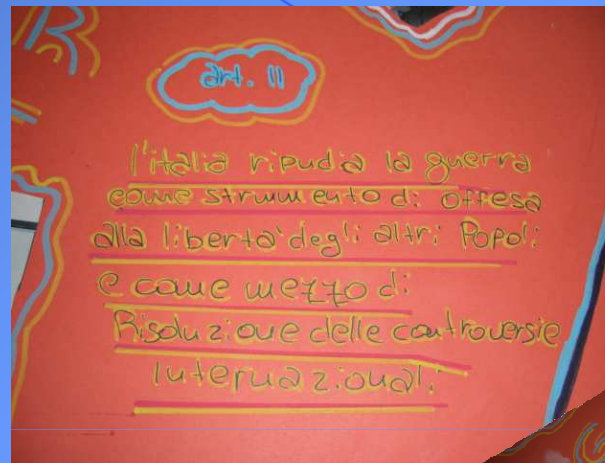 art. 11
l'italia ripudia la guerra
come strumento di offesa
alla libertà degli altri Popoli
e come mezzo di
Risoluzione delle controversie
Internazionali